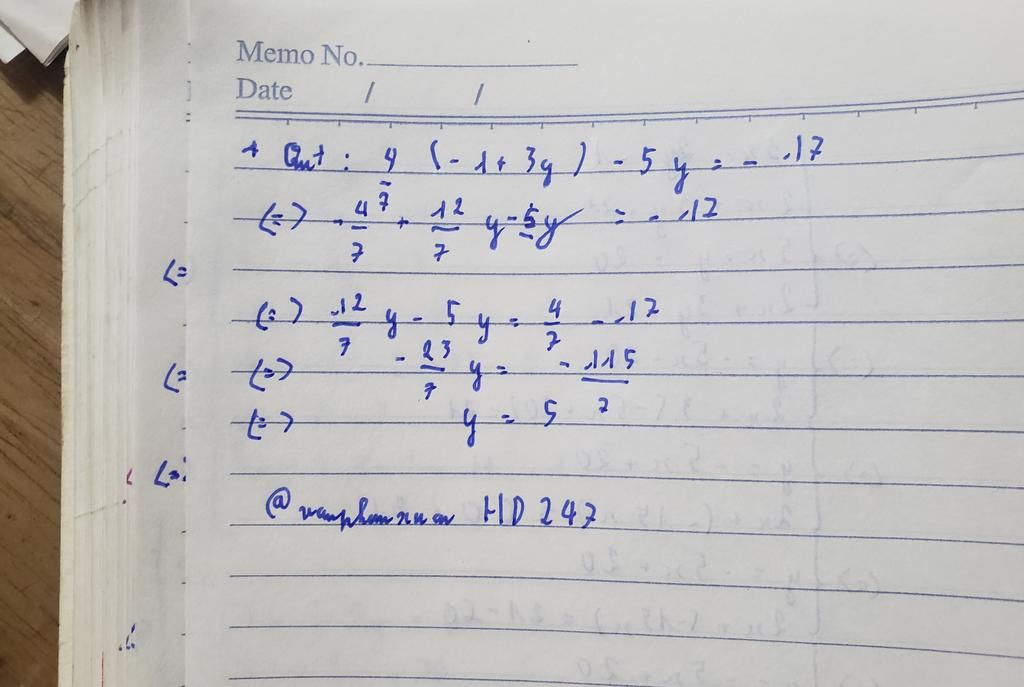 Memo No.
Date / /
: 4/7 (-1+3y) - 5y = -17
(=) -4/7 + 12/7 y - 5y = -17
(=
(=) 12/7 y - 5y = 4/7 - 17
(= (=) -23/7 y = -115/7
(=) y = 5
@vanphmxuan HD 247